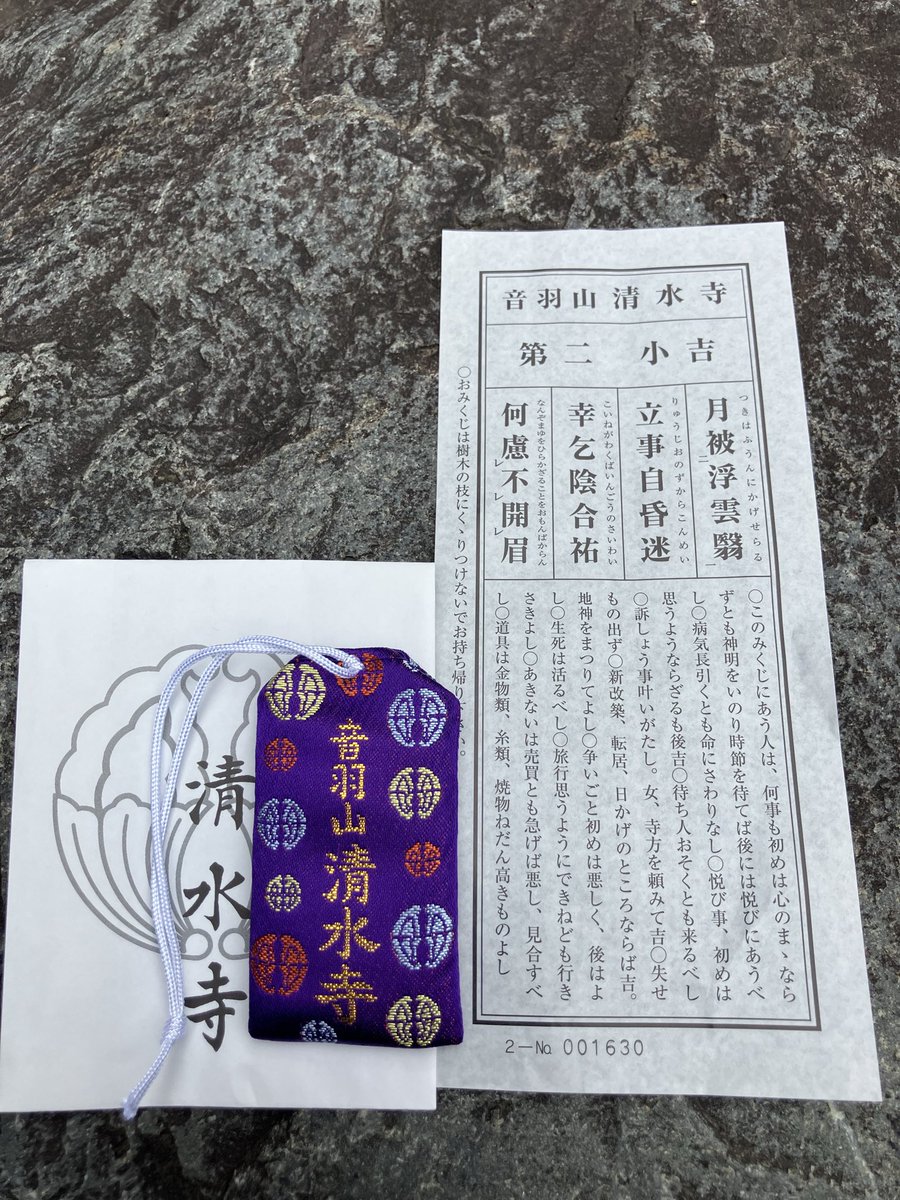 音羽山清水寺
第二 小吉
つきはふうんにかげせらる
月被二浮雲翳一
りゅうじおのずからこんめい
立事自昏迷
こいねがわくばいんごうのさいわい
幸乞陰合祐
なんぞまゆをひらかざることをおもんばからん
何慮レ不レ開レ眉
〇このみくじにあう人は、何事も初めは心のまゝなら
ずとも神明をいのり時節を待てば後には悦びにあうべ
し〇病気長引くとも命にさわりなし〇悦び事、初めは
思うようならざるも後吉〇待ち人おそくとも来るべし
〇訴しょう事叶いがたし。女、寺方を頼みて吉〇失せ
もの出ず〇新改築、転居、日かげのところならば吉。
地神をまつりてよし〇争いごと初めは悪しく、後はよ
し〇生死は活るべし〇旅行思うようにできねども行き
さきよし〇あきないは売買とも急げば悪し、見合すべ
し〇道具は金物類、糸類、焼物ねだん高きものよし
2－No. 001630
〇おみくじは樹木の枝にくゝりつけないでお持ち帰り
音羽山清水寺
清水寺